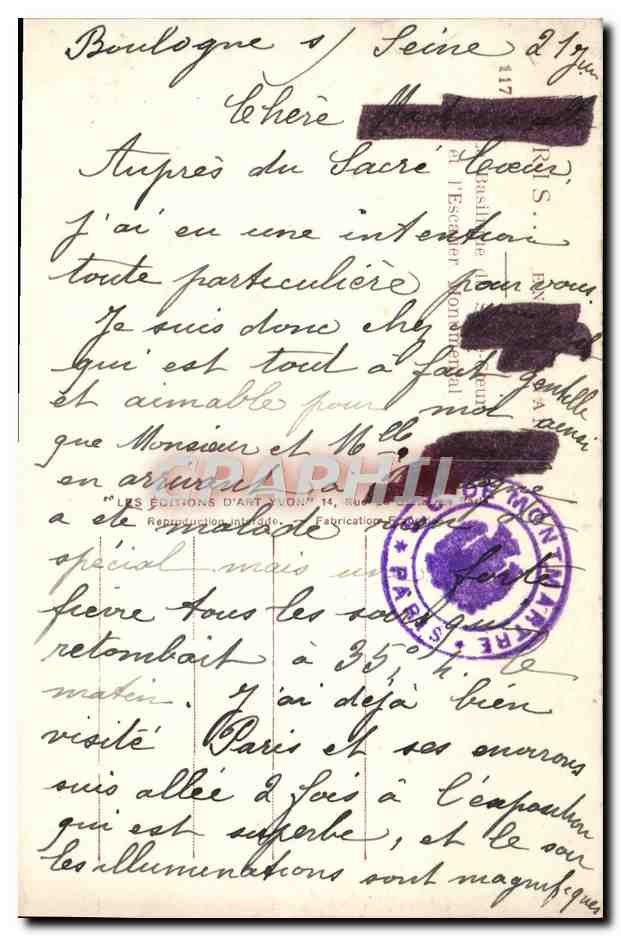 Boulogne s/ Seine 21 juin
Chère
Auprès du Sacré Cœur,
j'ai eu une intention
toute particulière pour vous.
Je suis donc chez
qui est tout à fait gentille
et aimable pour moi ainsi
que Monsieur et Mlle
en arrivant à
a été malade rien
spécial mais une forte
fièvre tous les soirs qui
retombait à 35,°4. le
matin. J'ai déjà bien
visité Paris et ses environs
suis allée 2 fois à l'exposition
qui est superbe, et le soir
les illuminations sont magnifiques
117
RIS...
Basilique
et l'Escalier Monumental
LES ÉDITIONS D'ART YVON" 14, Rue
Reproduction interdite. — Fabrication
DE MONTMARTRE * PARIS *
CPAPHIL.com